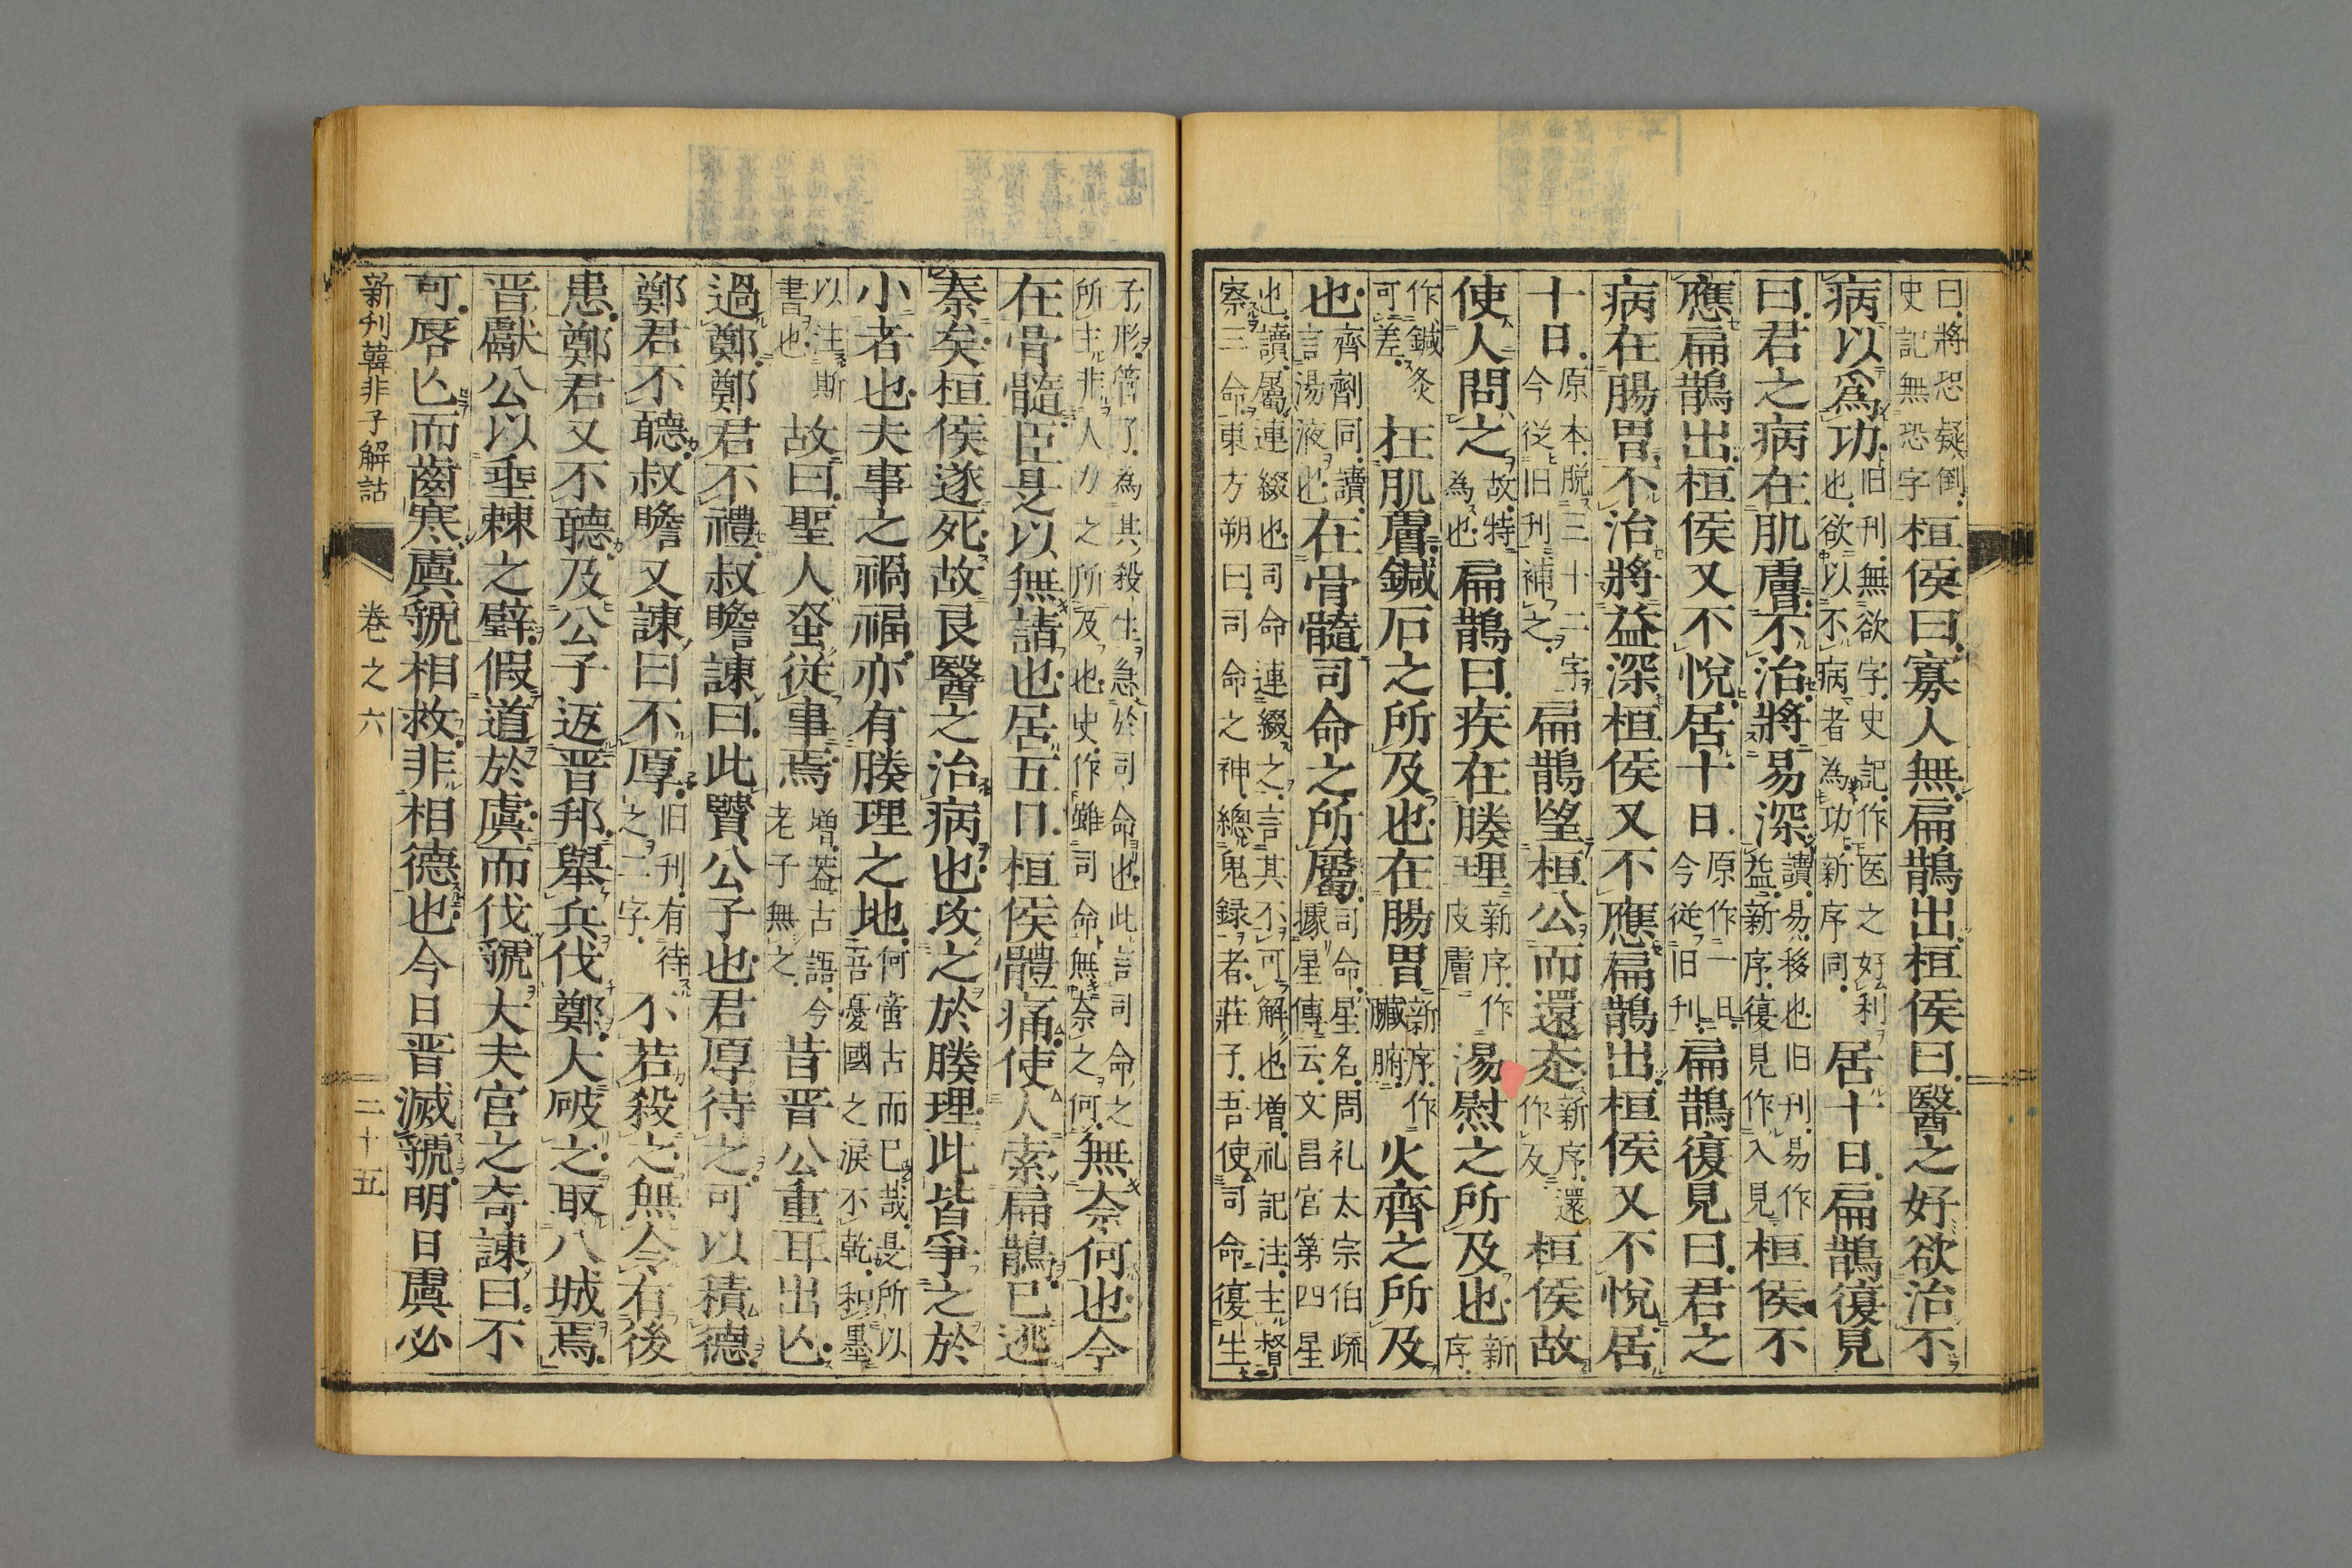 曰將恐疑倒史記無恐字桓侯曰寡人無扁鵲出桓侯曰醫之好欲治不
病以爲功旧刊無欲字史記作医之好利也欲以不病者為功新序同居十日扁鵲復見
曰君之病在肌膚不治將易深讀易移也旧刊易作益新序復見作入見桓侯不
應扁鵲出桓侯又不悅居十日原作一日今従旧刊扁鵲復見曰君之
病在腸胃不治將益深桓侯又不應扁鵲出桓侯又不悅居
十日原本脱三十二字今従旧刊補之扁鵲望桓公而還走新序還作反桓侯故
使人問之故特為也扁鵲曰疾在腠理新序作皮膚湯熨之所及也新序
作鍼灸可差在肌膚鍼石之所及也在腸胃新序作臟腑火齊之所及
也齊劑同讀言湯液也在骨髓司命之所屬司命星名周礼太宗伯疏據星傳云文昌宮第四星
也讀屬連綴也司命連綴之言其不可解也増礼記注主督察三命東方朔曰司命之神總鬼録者莊子吾使司命復生
子形管了為其殺生急於司命也此言司命之所主非人力之所及也史作雖司命無奈之何無奈何也今
在骨髓臣是以無請也居五日桓侯體痛使人索扁鵲已逃
秦矣桓侯遂死故良醫之治病也攻之於腠理此皆爭之於
小者也夫事之禍福亦有腠理之地何啻古而已哉是所以吾憂國之涙不乾和墨
以注斯書也故曰聖人蚤從事焉増蓋古語今老子無之昔晋公重耳出亾
過鄭鄭君不禮叔瞻諫曰此賢公子也君厚待之可以積德
鄭君不聽叔瞻又諫曰不厚旧刊有待之二字不若殺之無令有後
患鄭君又不聽及公子返晋邦舉兵伐鄭大破之取八城焉
晋獻公以垂棘之璧假道於虞而伐虢大夫宮之奇諫曰不
可唇亾而齒寒虞虢相救非相德也今日晋滅虢明日虞必
新刊韓非子解詁 卷之六 二十五